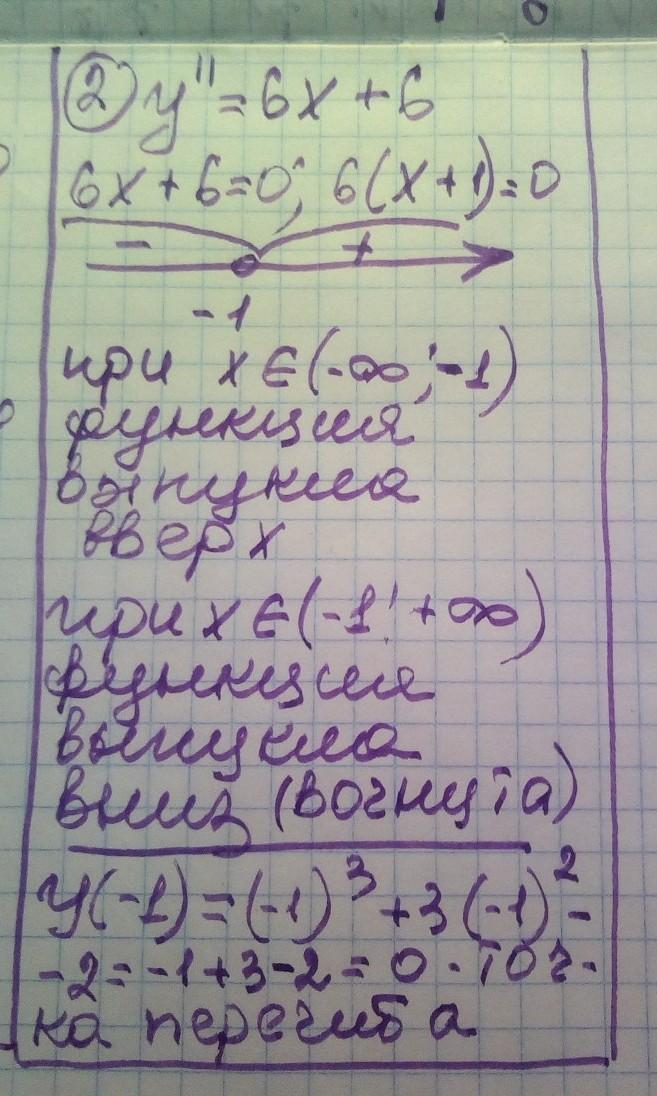 ② y'' = 6x + 6
6x + 6 = 0; 6(x+1) = 0
- +
-1
при x ∈ (-∞; -1)
функция
выпукла
вверх
при x ∈ (-1; +∞)
функция
выпукла
вниз (вогнута)
y(-1) = (-1)³ + 3(-1)² -
-2 = -1 + 3 - 2 = 0 - точ-
ка перегиба